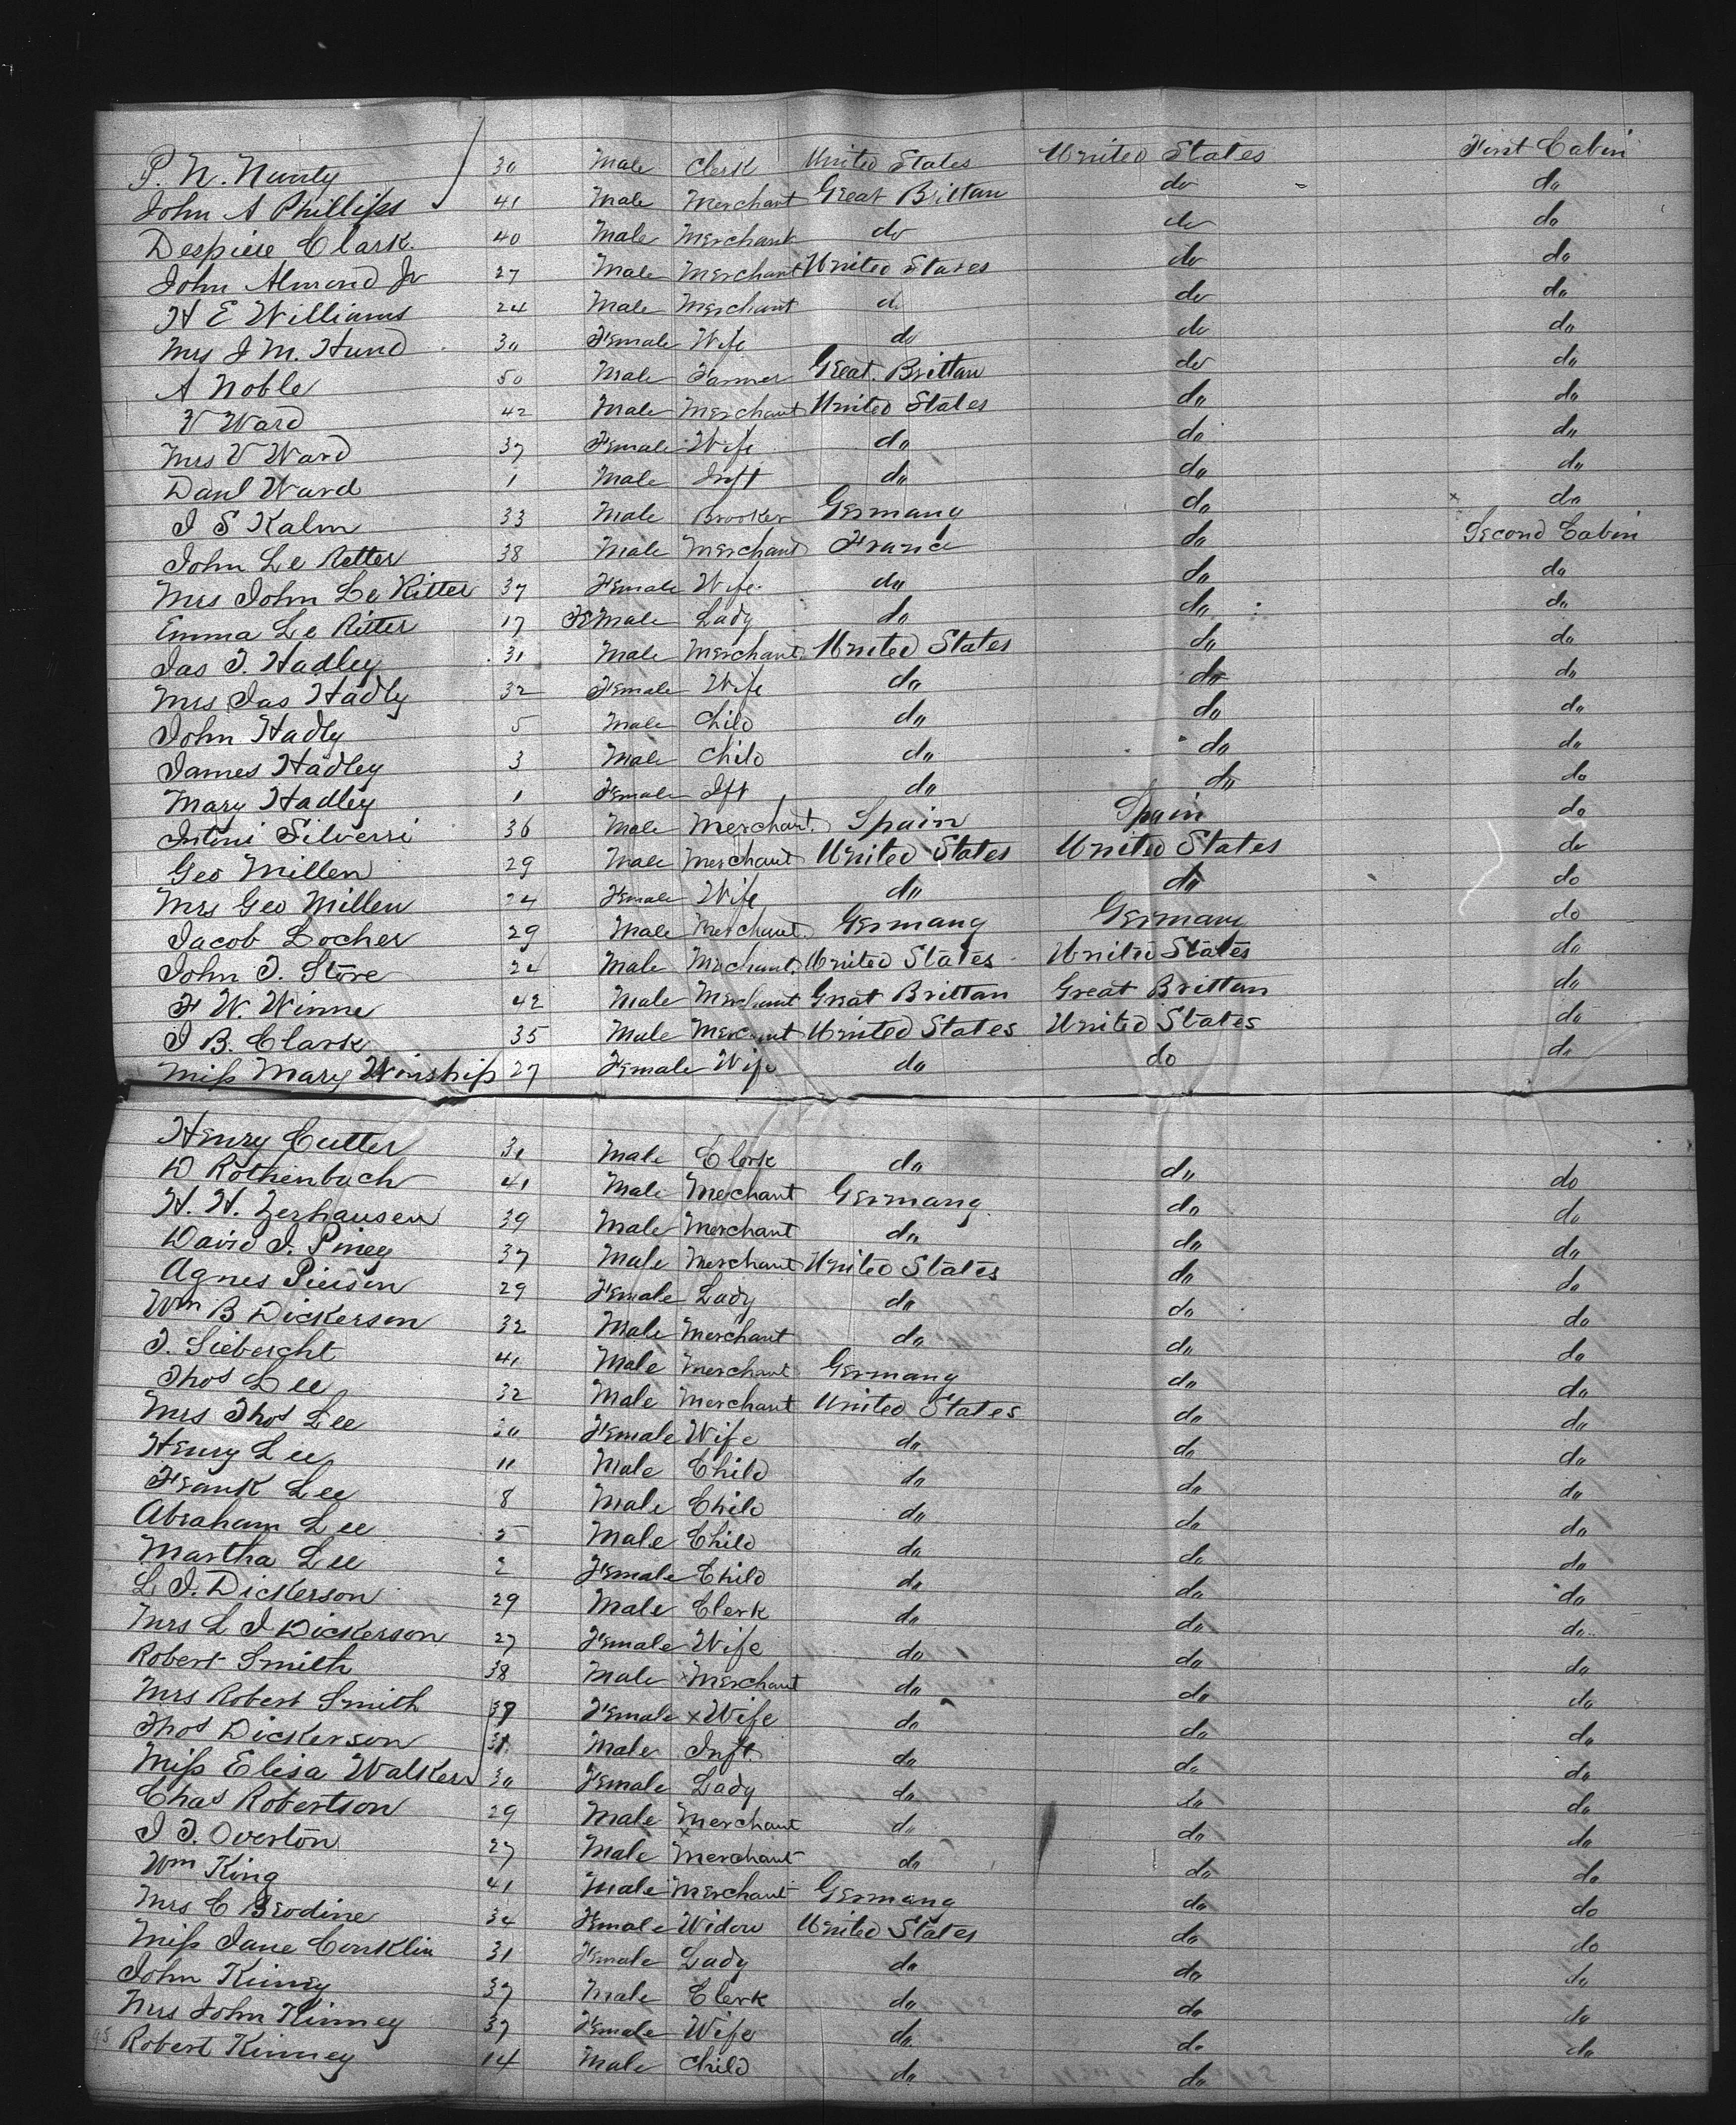 P. N. Nunty 30 Male Clerk United States United States First Cabin
John A Phillips 41 Male Merchant Great Brittan do do
Despiere Clark. 40 Male Merchant do do do
John Almond Jr 27 Male Merchant United States do do
H E Williams 24 Male Merchant do do do
Mrs J M. Hund 30 Female Wife do do do
A Noble 50 Male Farmer Great. Brittan do do
V Ward 42 Male Merchant United States do do
Mrs V Ward 37 Female Wife do do do
Danl Ward 1 Male Inft do do do
I S Kalm 33 Male Brooker Germany do do
John Le Retter 38 Male Merchant France do Second Cabin
Mrs John Le Ritter 37 Female Wife. do do do
Emma Le Ritter 17 Female Lady do do do
Jas T. Hadley 31 Male Merchant United States do do
Mrs Jas Hadly 32 Female Wife do do do
John Hadly 5 Male Child do do do
James Hadley 3 Male Child do do do
Mary Hadley 1 Female Ift do do do
Intoni Silverri 36 Male Merchant. Spain Spain do
Geo Millen 29 Male Merchant United States United States do
Mrs Geo Millen 24 Female Wife do do do
Jacob Locher 29 Male Merchant Germany Germany do
John T. Store 24 Male Merchant. United States United States do
F W. Winne 42 Male Merchant Great Brittan Great Brittan do
I B. Clark 35 Male Merchant United States United States do
Miss Mary Winship 27 Female Wife do do do
Henry Cutter 31 Male Clerk do do do
D Rothenbach 41 Male Merchant Germany do do
H. H. Zerhausen 39 Male Merchant do do do
David I. Piney 37 Male Merchant United States do do
Agnes Pierson 29 Female Lady do do do
Wm B Dickerson 32 Male Merchant do do do
T. Siebercht 41 Male Merchant Germany do do
Thos Lee 32 Male Merchant United States do do
Mrs Thos Lee 30 Female Wife do do do
Henry Lee 11 Male Child do do do
Frank Lee 8 Male Child do do do
Abraham Lee 5 Male Child do do do
Martha Lee 2 Female Child do do do
L I. Dickerson 29 Male Clerk do do do
Mrs L I Dickerson 27 Female Wife do do do
Robert Smith 38 Male Merchant do do do
Mrs Robert Smith 37 Female Wife do do do
Thos Dickerson Male Inft do do do
Miss Elisa Walker 30 Female Lady do do do
Chas Robertson 29 Male Merchant do do do
I T. Overton 27 Male Merchant do do do
Wm King 41 Male Merchant Germany do do
Mrs C Brodine 34 Female Widow United States do do
Miss Jane Conklin 31 Female Lady do do do
John Kinney 37 Male Clerk do do do
Mrs John Kinney 37 Female Wife do do do
Robert Kinney 14 Male Child do do